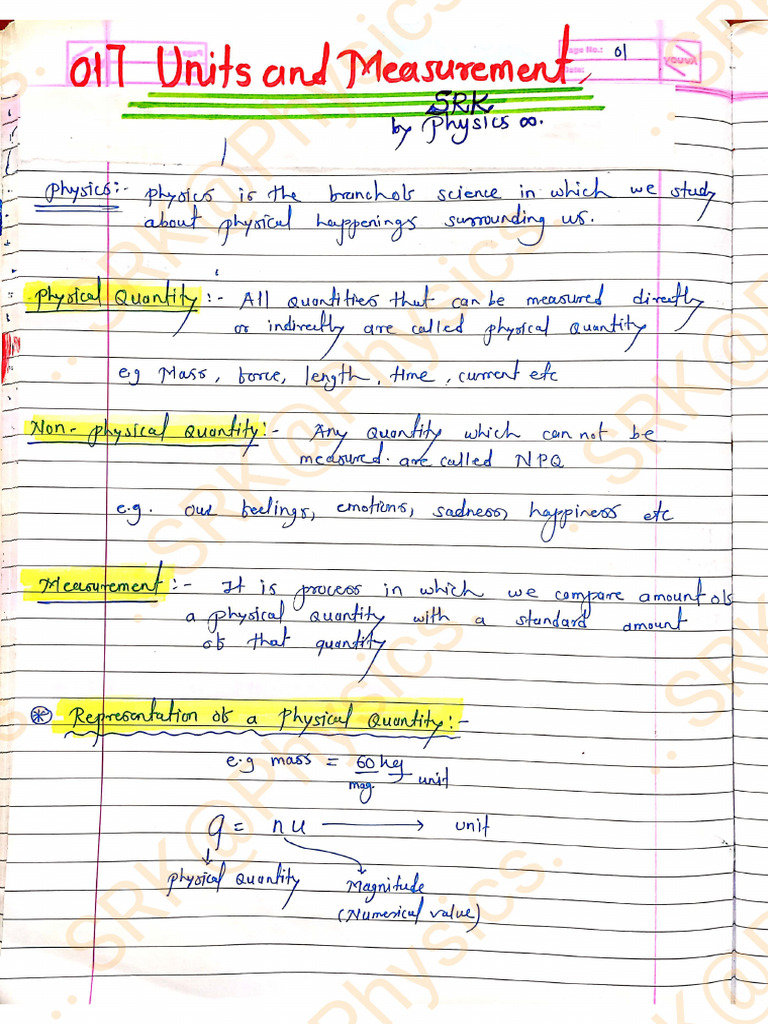 Page No.: 01
Date:
YUVAY
017 Units and Measurement
SRK
by Physics ∞.
Physics:- Physics is the branch of science in which we study
about physical happenings surrounding us.
Physical Quantity:- All quantities that can be measured directly
or indirectly are called physical Quantity
e.g Mass, force, length, time, current etc
Non-physical Quantity:- Any Quantity which can not be
measured. are called NPQ
e.g. our feelings, emotions, sadness, happiness etc
Measurement:- It is process in which we compare amount of
a physical quantity with a standard amount
of that quantity
* Representation of a Physical Quantity:-
e.g mass = 60 kg
mag. unit
q = nu → unit
Physical Quantity Magnitude
(Numerical value)
SRK@Physics.